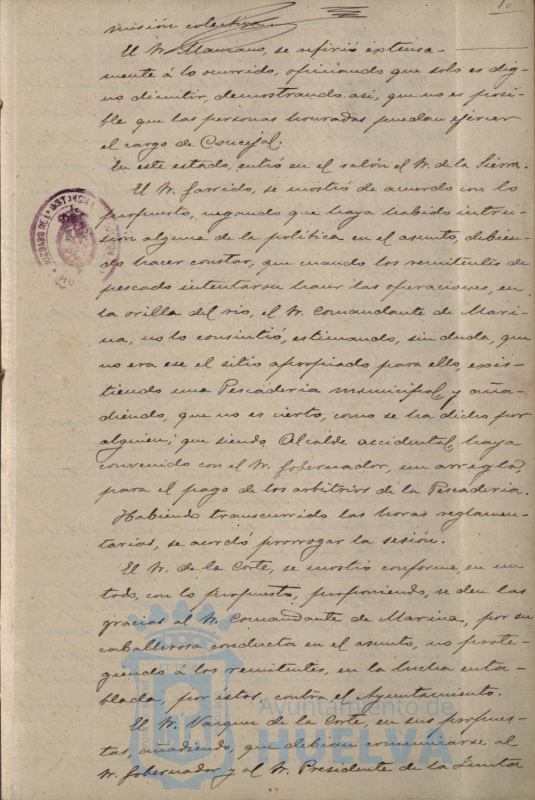 misión colectiva
El Sr. Manzano, se refirió extensa-
mente á lo ocurrido, opinando que solo es dig-
no dimitir, demostrando así, que no es posi-
ble que las personas honradas puedan ejercer
el cargo de Concejal.
En este estado, entró en el salón el Sr. de la Sierra.
El Sr. Garrido, se mostró de acuerdo con lo
propuesto, negando que haya habido intru-
sión alguna de la política en el asunto, debien-
do hacer constar, que cuando los remitentes de
pescado intentaron hacer las operaciones, en
la orilla del río, el Sr. Comandante de Mari-
na, no lo consintió, estimando, sin duda, que
no era ese el sitio apropiado para ello, exis-
tiendo una Pescaderia municipal y aña-
diendo, que no es cierto, como se ha dicho por
alguien, que siendo Alcalde accidental, haya
convenido con el Sr. Gobernador, un arreglo,
para el pago de los arbitrios de la Pescaderia.
Habiendo transcurrido las horas reglamen-
tarias, se acordó prorrogar la sesión.
El Sr. de la Corte, se mostró conforme, en un
todo, con lo propuesto, proponiendo, se den las
gracias al Sr. Comandante de Marina, por su
caballerosa conducta en el asunto, no prote-
giendo á los remitentes, en la lucha enta-
blada, por éstos, contra el Ayuntamiento.
El Sr. Vazquez de la Corte, en sus propues-
tas, añadiendo, que debian comunicarse al
Sr. Gobernador y al Sr. Presidente de la Junta
JUZGADO DE
Ayuntamiento de
HUELVA